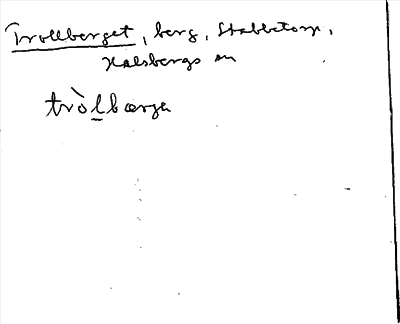 Trollberget, berg, Stabbetorp,
Halsbergs sn
tròlbærge